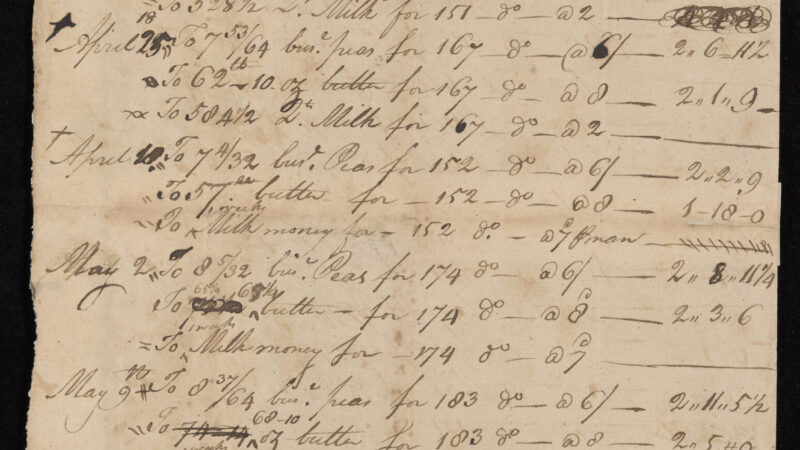 18 To 528 1/2 Qts Milk for 151 - do - @ 2 —
+ April 25 To 7 53/64 bus.s peas for 167 - do - @ 6/ — 2,, 6 - 11 1/2
To 62 lb - 10 oz butter for 167 - do - @ 8 — 2,, 1,, 9 -
To 584 1/2 Qts Milk for 167 - do - @ 2 —
+ April To 7 4/32 bus.s Peas for 152 - do - @ 6/ — 2,, 2,, 9
,, To 57 lb butter - for - 152 - do - @ 8 — 1 - 18 - 0
,, To 1 weeks Milk money for - 152 do - @ 7d p man —
May 2 ,, To 8 5/32 bus.s Peas for 174 - do - @ 6/ — 2,, 8,, 11 1/4
To 65 1/4 65 1/4 butter - for 174 do - @ 8d — 2,, 3,, 6
= To 1 weeks Milk money for - 174 do - @ 7d
May 9th To 8 37/64 bus.s peas for 183 do - @ 6/ — 2,, 11,, 5 1/2
,, To 74-14 68-10 oz butter for 183 do - @ 8 — 2,, 5